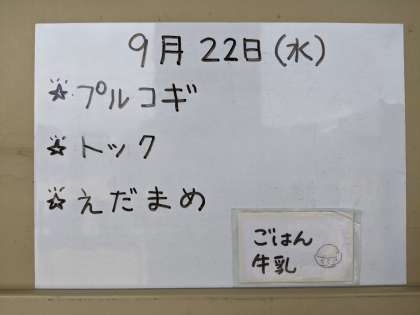 9月22日(水)
☆プルコギ
☆トック
☆えだまめ
ごはん
牛乳